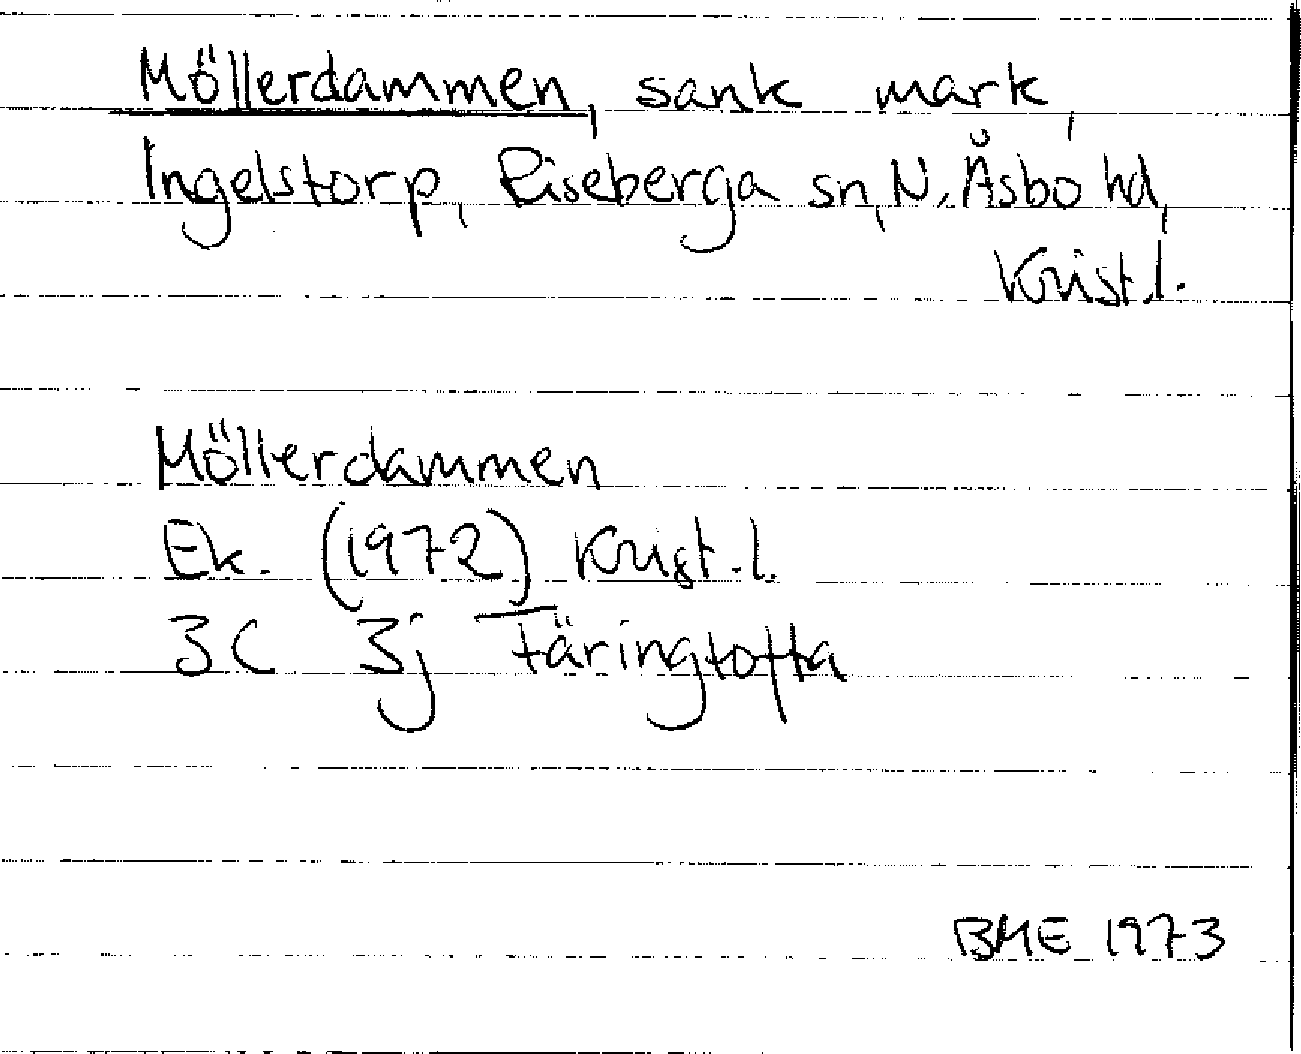 Möllerdammen, sank mark,
Ingelstorp, Riseberga sn, N. Åsbo hd,
Krist. l.
Möllerdammen
Ek. (1972) Krist. l.
3C 3j Färingtofta
BME 1973